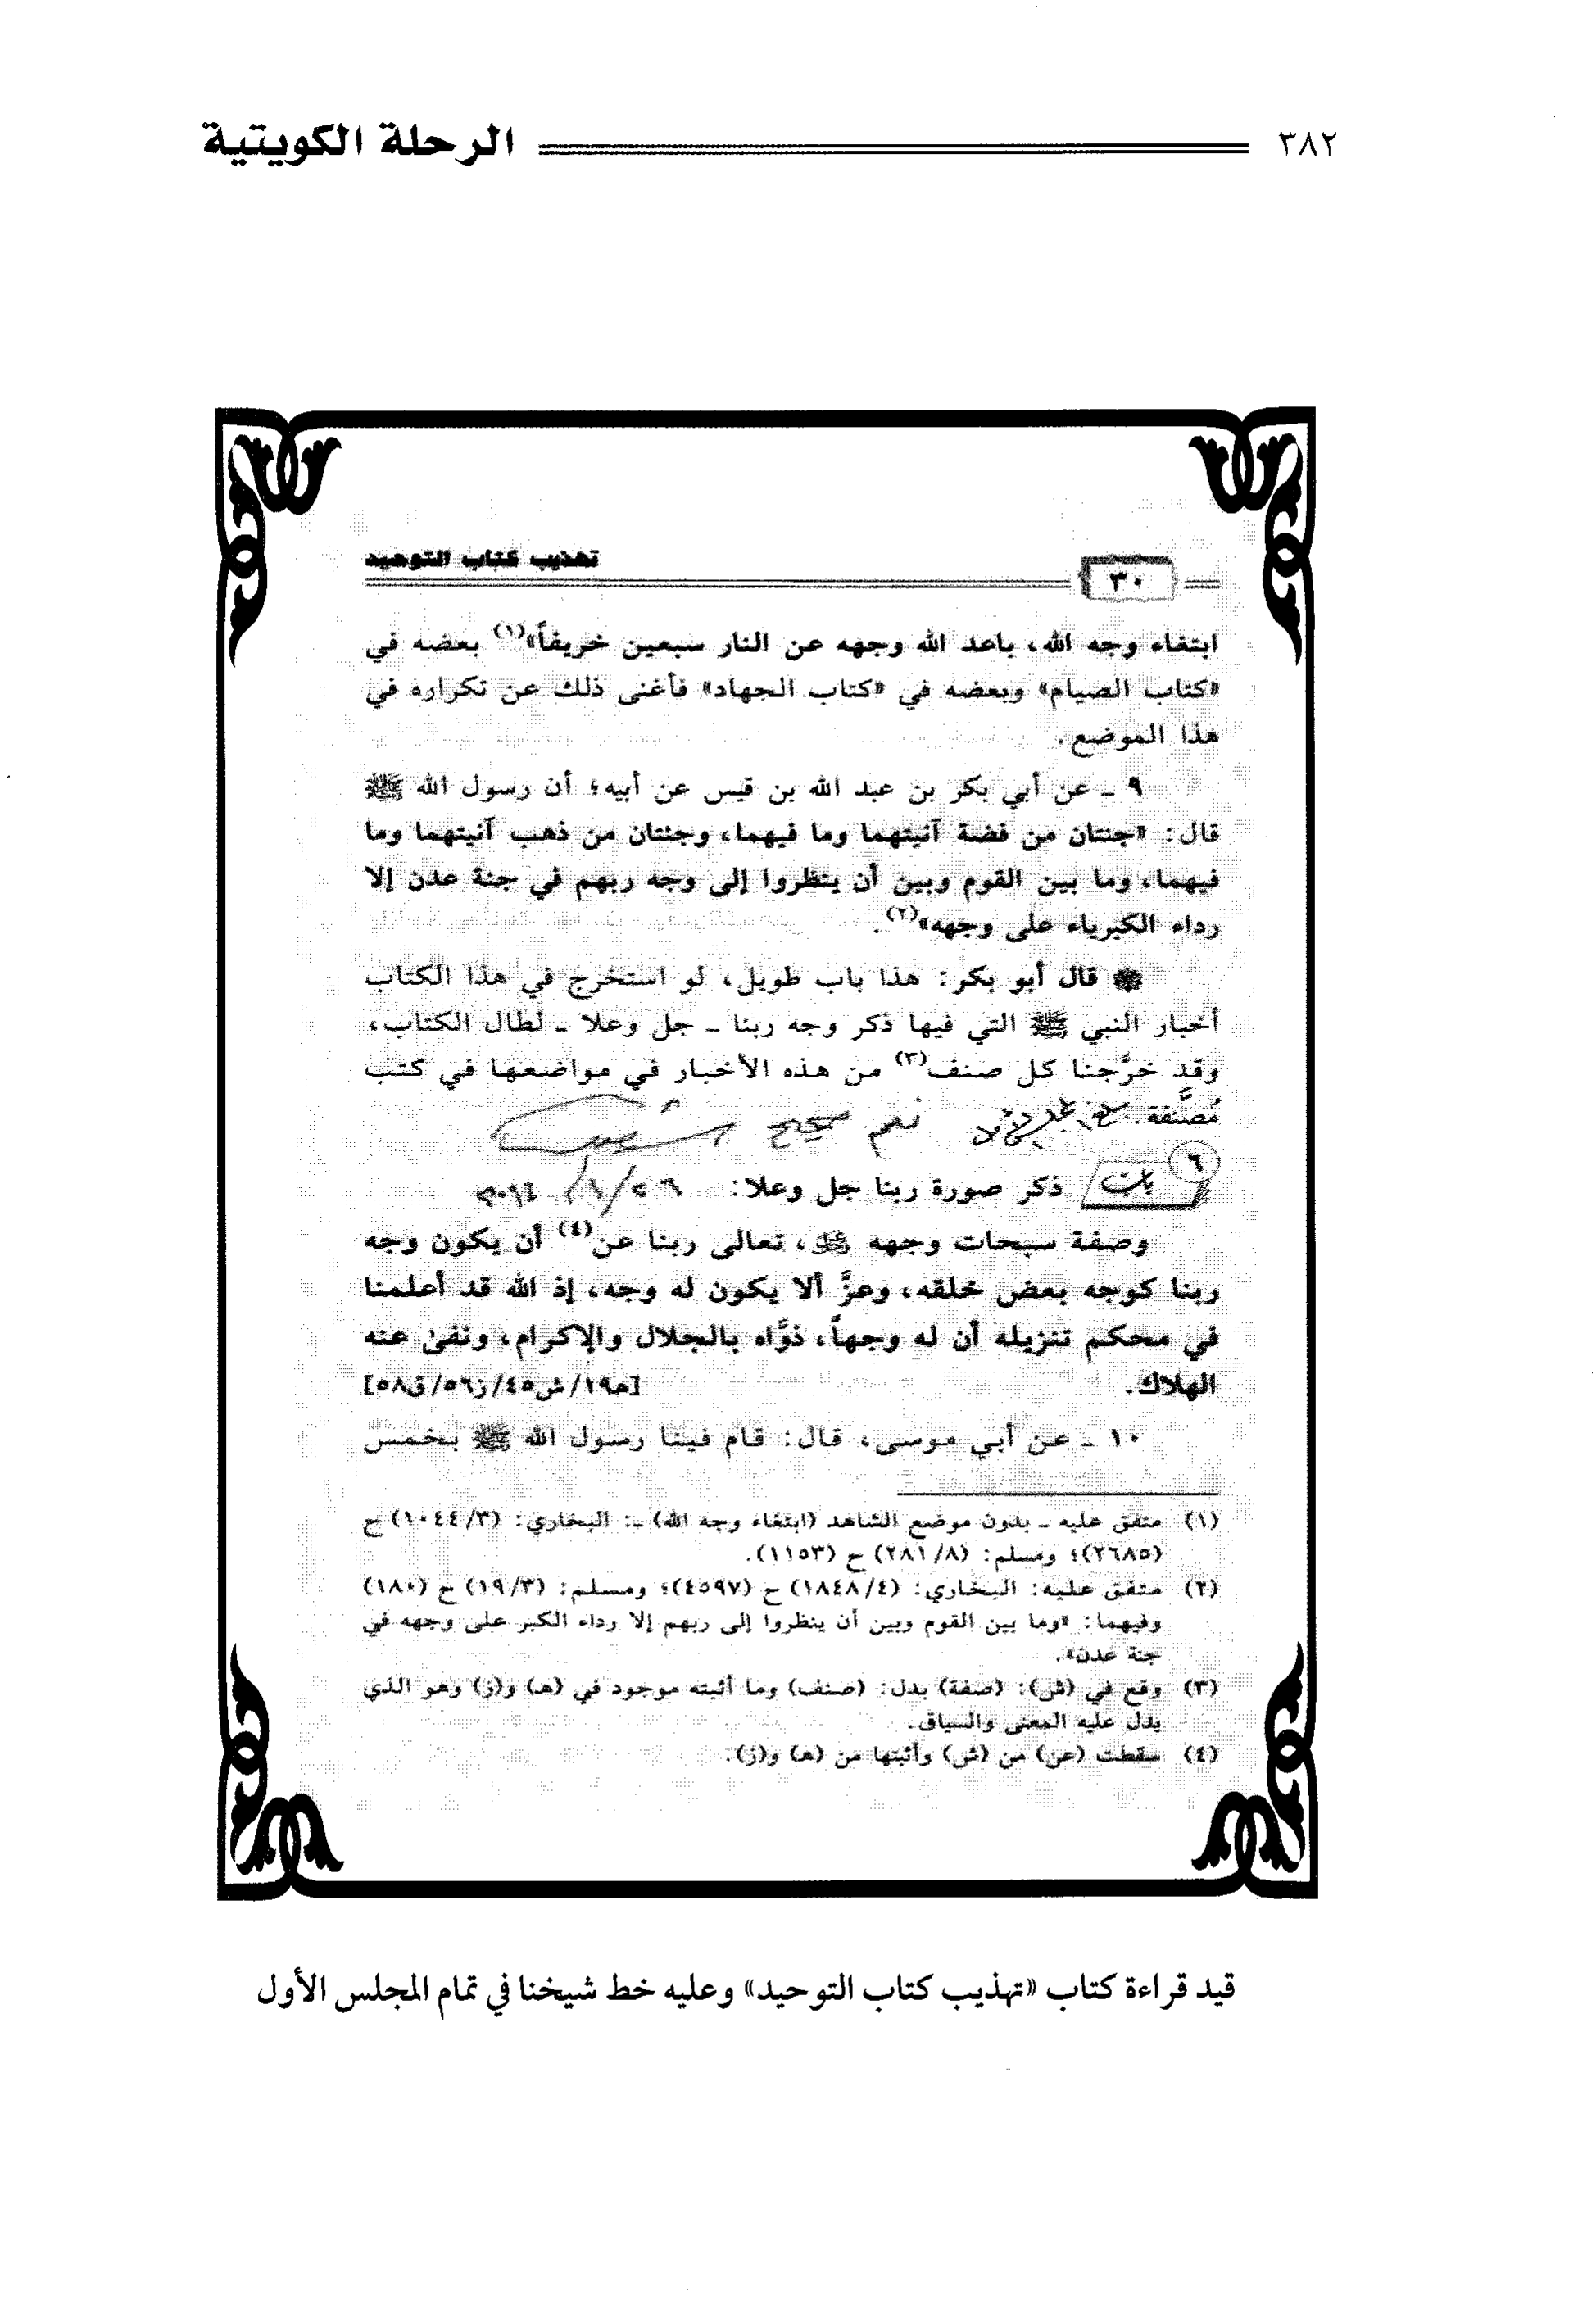 ٣٨٢ الرحلة الكويتية
٣٠ تهذيب كتاب التوحيد
ابتغاء وجه الله، باعد الله وجهه عن النار سبعين خريفاً»(١) بعضه في
«كتاب الصيام» وبعضه في «كتاب الجهاد» فأغنى ذلك عن تكراره في
هذا الموضع.
٩ ـ عن أبي بكر بن عبد الله بن قيس عن أبيه؛ أن رسول الله ﷺ
قال: «جنتان من فضة آنيتهما وما فيهما، وجنتان من ذهب آنيتهما وما
فيهما، وما بين القوم وبين أن ينظروا إلى وجه ربهم في جنة عدن إلا
رداء الكبرياء على وجهه»(٢).
قال أبو بكر: هذا باب طويل، لو استخرج في هذا الكتاب
أخبار النبي ﷺ التي فيها ذكر وجه ربنا ـ جل وعلا ـ لطال الكتاب،
وقد خرَّجنا كل صنف(٣) من هذه الأخبار في مواضعها في كتب
مُصنَّفة. نعم صحيح
٦ باب ذكر صورة ربنا جل وعلا:
وصفة سبحات وجهه ﷻ، تعالى ربنا عن(٤) أن يكون وجه
ربنا كوجه بعض خلقه، وعزَّ ألا يكون له وجه، إذ الله قد أعلمنا
في محكم تنزيله أن له وجهاً، ذوَّاه بالجلال والإكرام، ونفىٰ عنه
الهلاك. [هـ١٩/ ش٤٥/ ز٥٦/ ق٥٨]
١٠ ـ عن أبي موسى، قال: قام فينا رسول الله ﷺ بخمس
(١) متفق عليه ـ بدون موضع الشاهد (ابتغاء وجه الله) ـ: البخاري: (٣/ ١٠٤٤) ح
(٢٦٨٥)؛ ومسلم: (٨/ ٢٨١) ح (١١٥٣).
(٢) متفق عليه: البخاري: (٤/ ١٨٤٨) ح (٤٥٩٧)؛ ومسلم: (٣/ ١٩) ح (١٨٠)
وفيهما: «وما بين القوم وبين أن ينظروا إلى ربهم إلا رداء الكبر على وجهه في
جنة عدن».
(٣) وقع في (ش): (صفة) بدل: (صنف) وما أثبته موجود في (هـ) و(ز) وهو الذي
يدل عليه المعنى والسياق.
(٤) سقطت (عن) من (ش) وأثبتها من (هـ) و(ز).
قيد قراءة كتاب «تهذيب كتاب التوحيد» وعليه خط شيخنا في تمام المجلس الأول